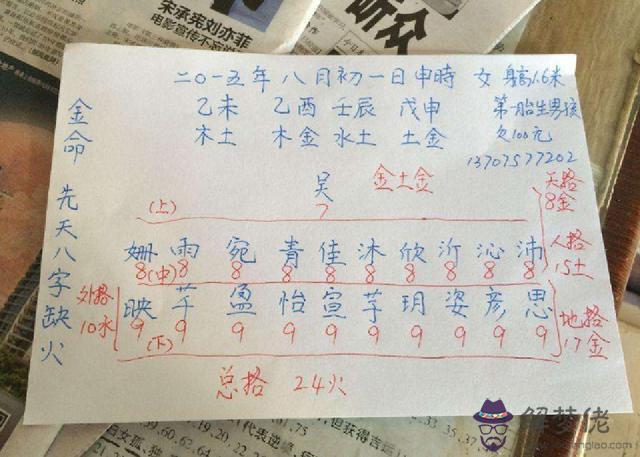 朱承宪刘亦菲
听众
二〇一五年八月初一日申時 女 身高1.6米
乙未 乙酉 壬辰 戊申 第一胎生男孩
木土 木金 水土 土金 欠100元
13707577202
金命 先天八字缺火
吴 金土金
(上) 7
天格
8金
姗 雨 宛 青 佳 沐 欣 沂 沁 沛
8 (中) 8 8 8 8 8 8 8 8 8
人格
15土
外格
10水
映 芊 盈 怡 宣 芓 玥 姿 彦 思
9 9 9 9 9 9 9 9 9 9
(下)
地格
17金
总格 24火
解梦佬